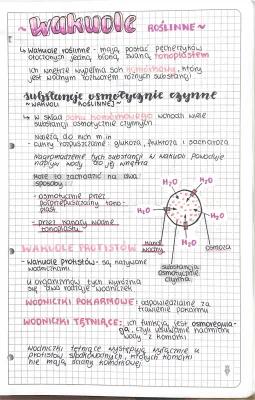 ~ wakuole ROŚLINNE ~
↳ Wakuole roślinne - mają postać pęcherzyków
otoczonych jedną błoną, zwaną tonoplastem
Ich wnętrze wypełnia sok komórkowy, który
jest wodnym roztworem różnych substancji
substancje osmotycznie czynne
~ WAKUOLI ROŚLINNEJ ~
↳ w skład soku komórkowego wchodzi wiele
substancji osmotycznie czynnych
- Należą do nich m.in
- cukry rozpuszczalne: glukoza, fruktoza i sacharoza
Nagromadzenie tych substancji w wakuoli powoduje
napływ wody do jej wnętrza
Może to zachodzić na dwa
sposoby:
- osmotycznie przez
półprzepuszczalny tono-
plast
- przez kanały wodne
tonoplastu
H₂O
H₂O
H₂O
H₂O
H₂O
kanał
wodny
osmoza
substancja
osmotycznie
czynna
WAKUOLE PROTISTÓW
- Wakuole protistów - są nazywane
wodniczkami.
U organizmów tych wyróżnia
się dwa rodzaje wodniczek
WODNICZKI POKARMOWE: odpowiedzialne za
trawienie pokarmu
WODNICZKI TĘTNIĄCE: ich funkcją jest osmoregula-
cja, czyli usuwanie nadmiaru
wody z komórki
Wodniczki tętniące występują wyłącznie u
protistów słodkowodnych, których komórki
nie mają ściany komórkowej